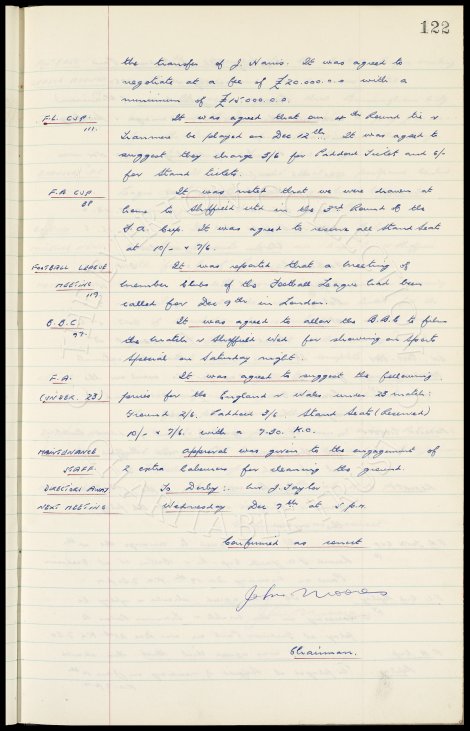 122
the transfer of J. Harris. It was agreed to
negotiate at a fee of £20.000.0.0 with a
minimum of £15000.0.0.
F.L. CUP. It was agreed that our 4th Round tie v
111. Tranmere be played on Dec 12th. It was agreed to
suggest they charge 3/6 for Paddock Tickets and 6/-
for Stand tickets.
F.A. CUP It was noted that we were drawn at
88 home to Sheffield Utd in the 3rd Round of the
F.A. Cup. It was agreed to reserve all Stand Seats
at 10/- & 7/6.
FOOTBALL LEAGUE It was reported that a meeting of
MEETING member Clubs of the Football League had been
119. called for Dec 9th in London.
B.B.C. It was agreed to allow the B.B.C to film
97. the match v Sheffield Wed for showing on Sports
Special on Saturday night.
F.A. It was agreed to suggest the following
(UNDER. 23) prices for the England v Wales under 23 match:
Ground 2/6. Paddock 3/6. Stand Seats (Reserved)
10/- & 7/6. with a 7-30. K.O.
MAINTENANCE Approval was given to the engagement of
STAFF. 2 extra labourers for cleaning the ground.
DIRECTORS AWAY To Derby:- Mr J. Taylor
NEXT MEETING Wednesday Dec 7th at 5 p.m.
Confirmed as correct
John Moores
Chairman.